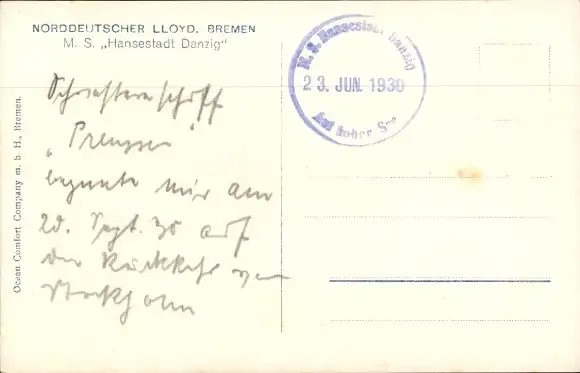 NORDDEUTSCHER LLOYD, BREMEN
M. S. „Hansestadt Danzig“
M. S. Hansestadt Danzig
23. JUN. 1930
Auf hoher See
Ocean Comfort Company m. b. H., Bremen.
Schwesterschiff
„Preussen“
begegnete mir am
20. Sept. 30 auf
der Rückkehr von
Stockholm